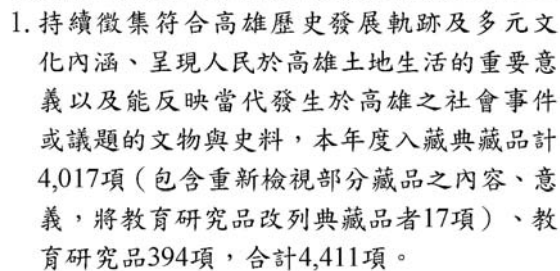 1. 持續徵集符合高雄歷史發展軌跡及多元文
化內涵、呈現人民於高雄土地生活的重要意
義以及能反映當代發生於高雄之社會事件
或議題的文物與史料，本年度入藏典藏品計
4,017項（包含重新檢視部分藏品之內容、意
義，將教育研究品改列典藏品者17項）、教
育研究品394項，合計4,411項。